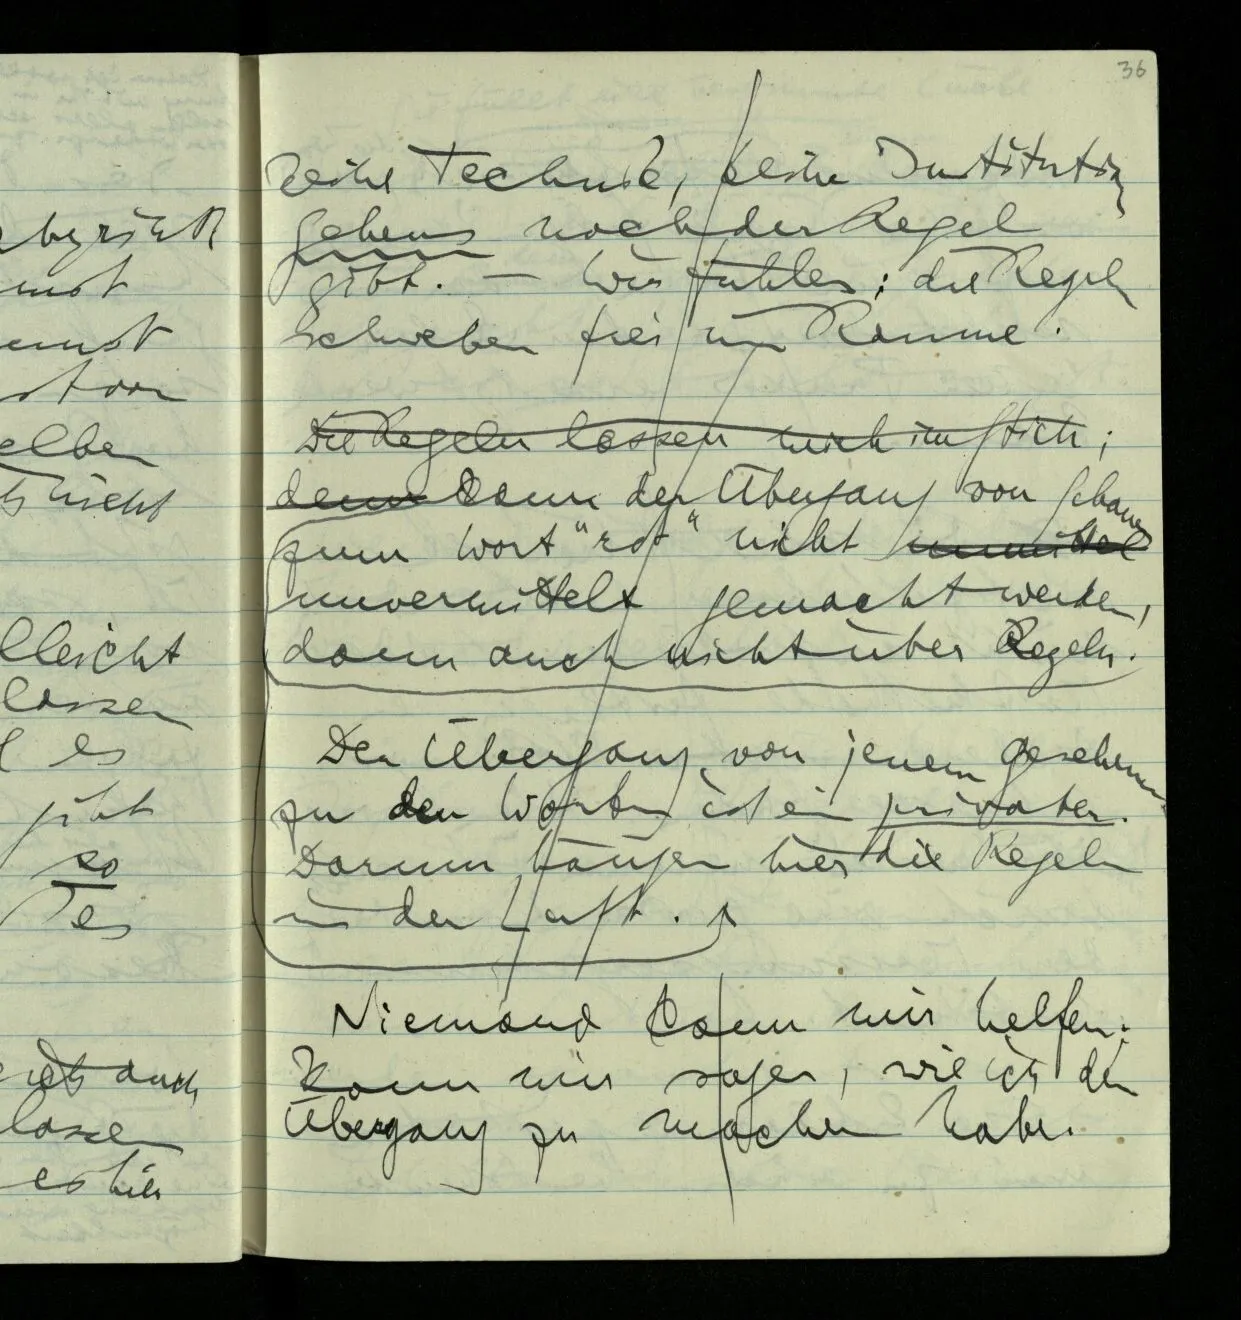 36
keine Technik, keine Institution
Gehens nach der Regel
gibt. — Wir fühlen: die Regeln
schweben frei im Raume.
Die Regeln lassen mich im Stich;
denn Kann der Übergang von
zum Wort "rot" nicht unmittel
unvermittelt gemacht werden,
dann auch nicht über Regeln.
Der Übergang von jenem Gesehenen
zu den Worten ist ein privater.
Darum hängen hier die Regeln
in der Luft.
Niemand kann mir helfen;
Kann mir sagen, wie ich den
Übergang zu machen habe.
lleicht
lassen
es
gibt
so
es
auch
lassen
es hier